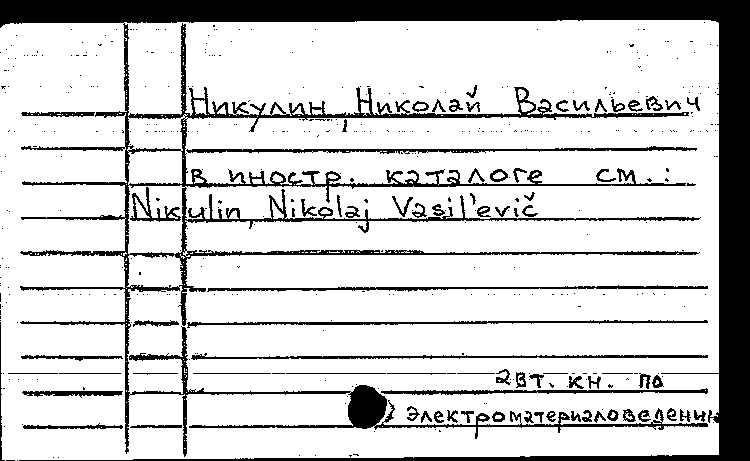 Никулин, Николай Васильевич
в иностр. каталоге см.:
Nikulin, Nikolaj Vasil'evič
авт. кн. по
электроматериаловедению